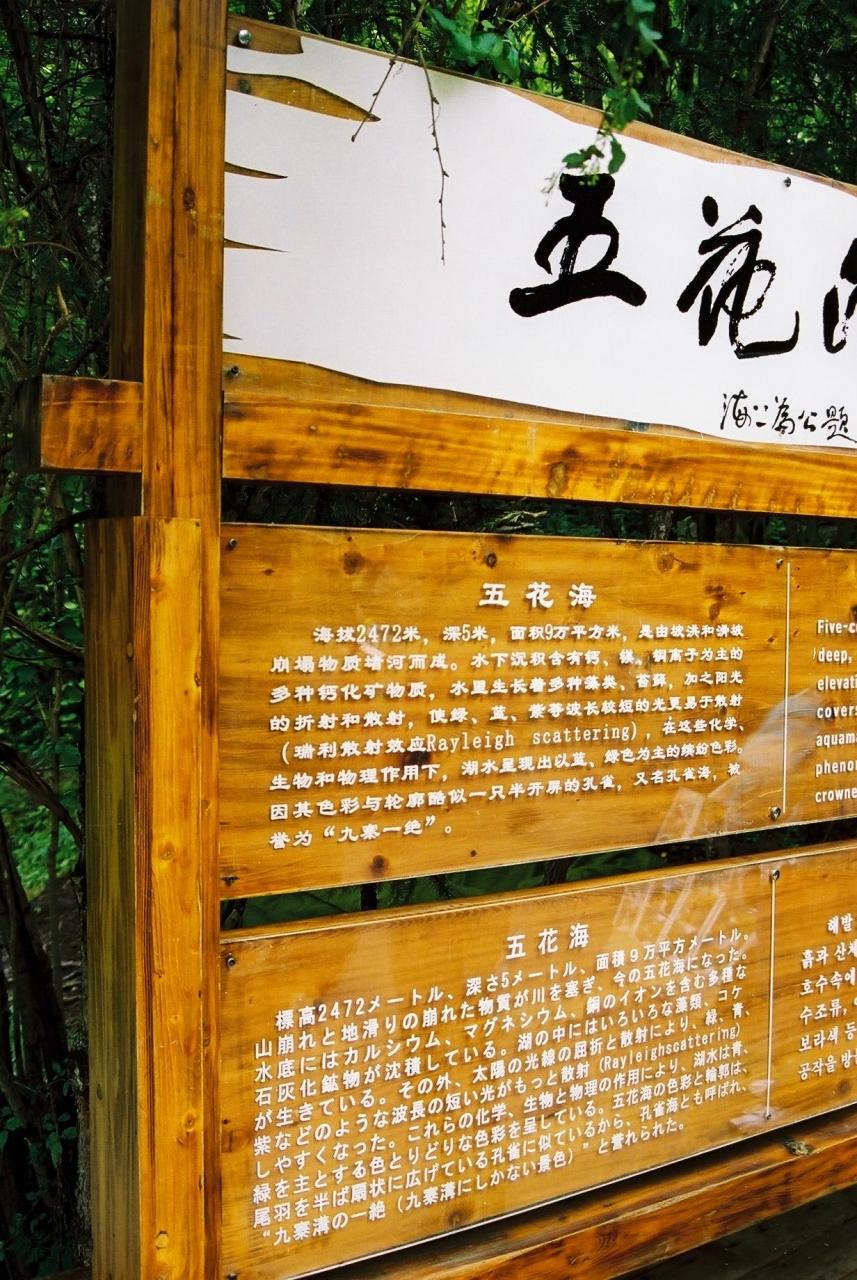 五花
五花海
海拔2472米，深5米，面积9万平方米，是由坡洪和滑坡
崩塌物质堵河而成。水下沉积含有钙、镁、铜离子为主的
多种钙化矿物质，水里生长着多种藻类、苔藓，加之阳光
的折射和散射，使绿、蓝、紫等波长较短的光更易于散射
（瑞利散射效应Rayleigh scattering），在这些化学、
生物和物理作用下，湖水呈现出以蓝、绿色为主的缤纷色彩。
因其色彩与轮廓酷似一只半开屏的孔雀，又名孔雀海，被
誉为“九寨一绝”。
Five-c
deep,
elevati
covers
aquama
phenor
crowne
五花海
標高2472メートル、深さ5メートル、面積９万平方メートル。
山崩れと地滑りの崩れた物質が川を塞ぎ、今の五花海になった。
水底にはカルシウム、マグネシウム、銅のイオンを含む多種な
石灰化鉱物が沈積している。湖の中にはいろいろな藻類、コケ
が生きている。その外、太陽の光線の屈折と散射により、緑、青、
紫などのような波長の短い光がもっと散射（Rayleighscattering）
しやすくなった。これらの化学、生物と物理の作用により、湖水は青、
緑を主とする色とりどりな色彩を呈している。五花海の色彩と輪郭は、
尾羽を半ば扇状に広げている孔雀に似ているから、孔雀海とも呼ばれ、
“九寨溝の一絶（九寨溝にしかない景色）”と誉れられた。
해발
흙과 산채
호수속에
수조류,
보라색 등
공작을 방